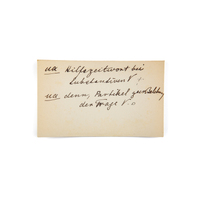 ua Hilfszeitwort bei
Substantiven V
ua denn, Partikel zur
der Frage V.